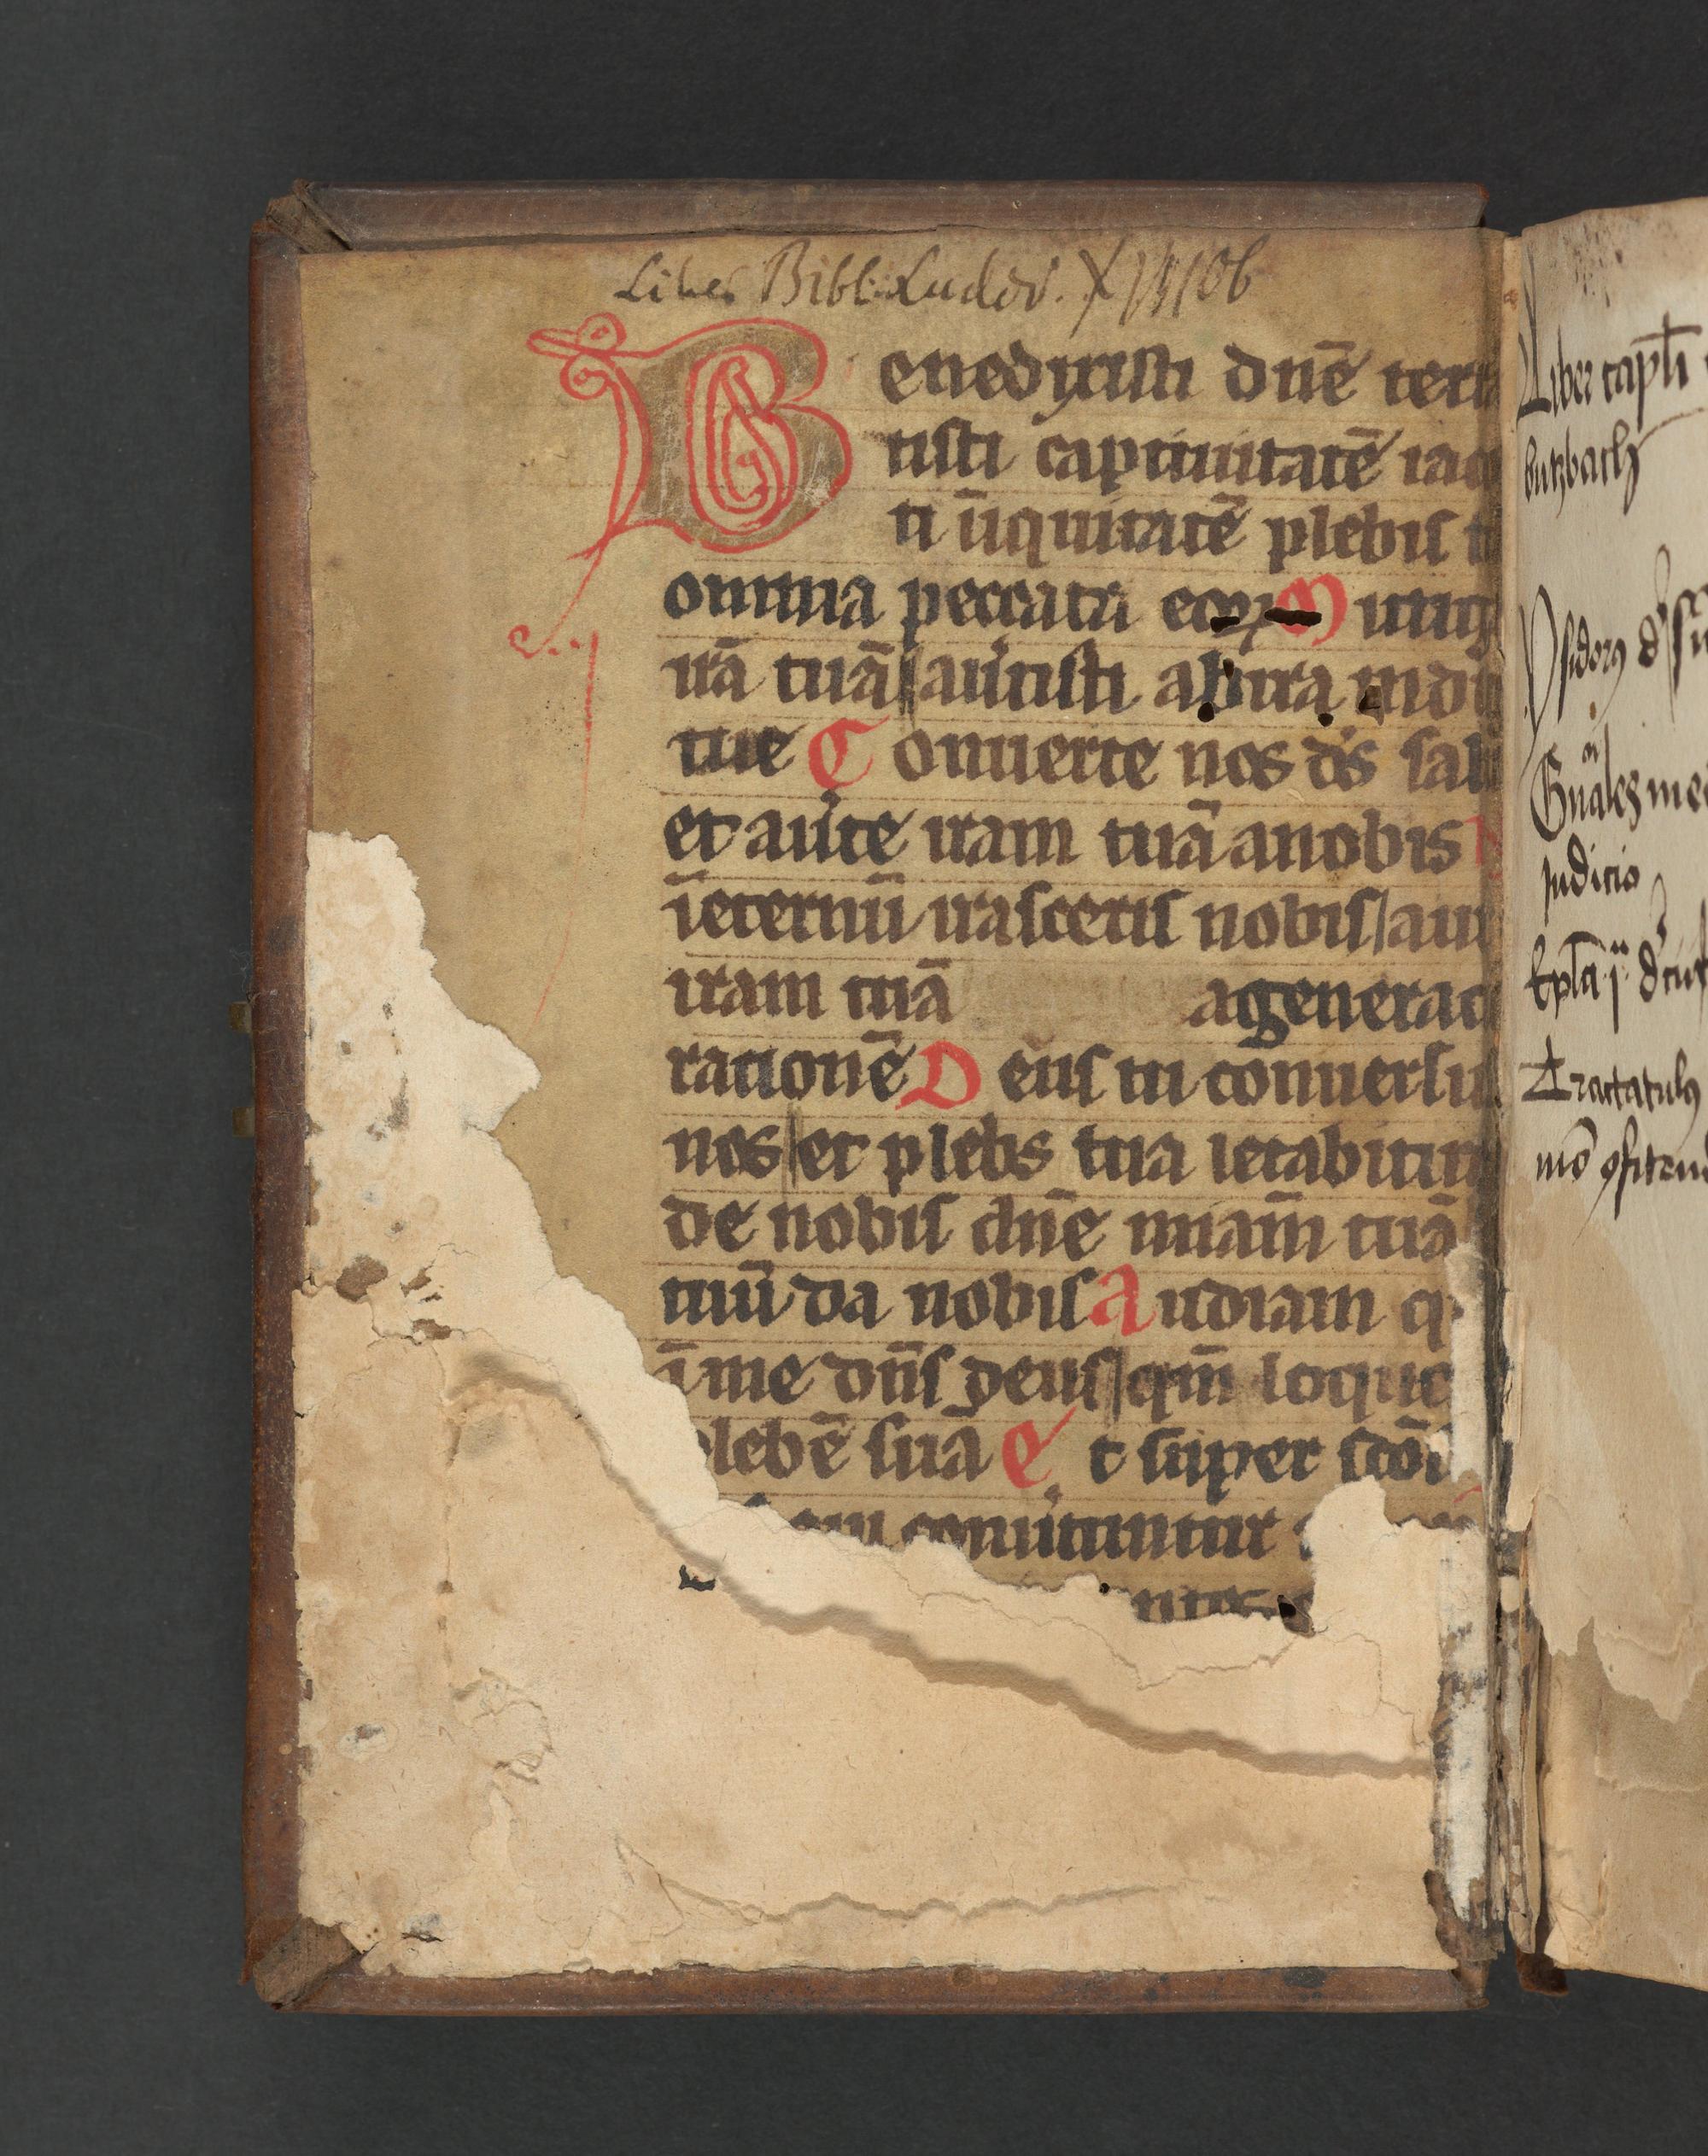 Liber Bibl. Ludov. X
Benedixisti dnē terra
tisti captiuitatē iac
ti iīquitatē plebis t
omnia peccata eoꝝ Mitig
irā tuā auꝰtisti ab ira indi
tue Conuerte nos dꝰs salu
et auꝰte iram tuā anobis N
īeternū irasceris nobis aut
iram tuā ageneraci
rationē Deus tu conuersus
nos et plebs tua letabitur
de nobis dnē miam̄ tuā
tuū da nobis Audiam q
ī me dn̄s deus qm̄ loque
plebē suā Et super sco̅s
conuꝰtuntur
Liber capl̄i
butzbach
Ysidorꝰ
Gn̄alis
judicio
Tractatulꝰ
mō ꝯfitend